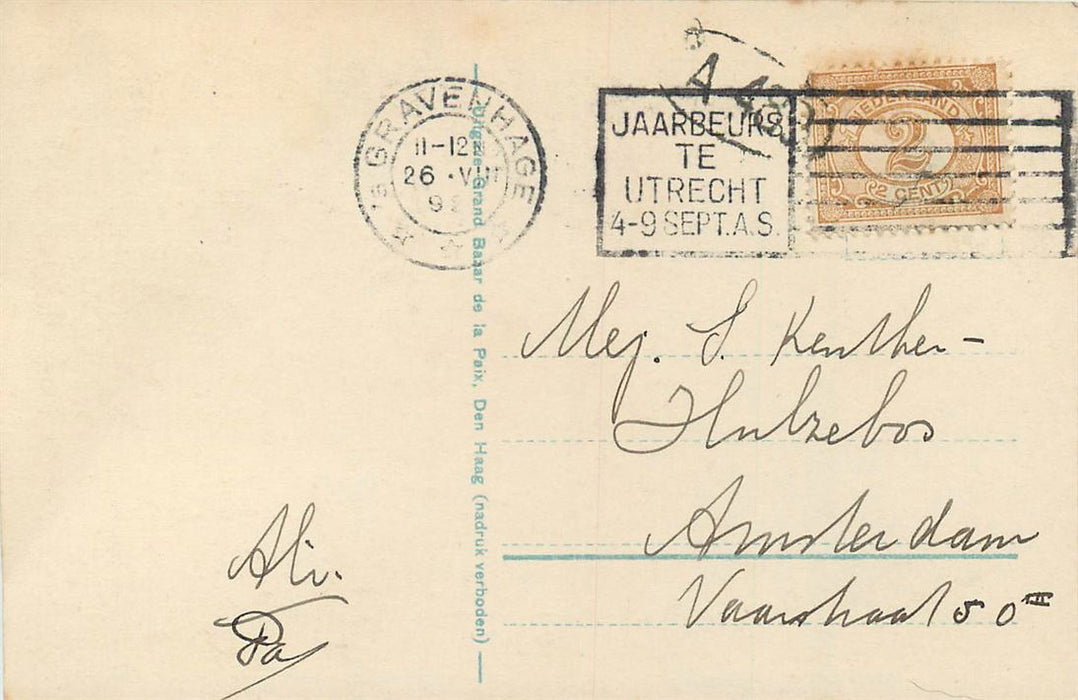 'S GRAVENHAGE
11-12
26 · VIII
92
JAARBEURS
TE
UTRECHT
4-9 SEPT. A.S.
NEDERLAND
2
2 CENT
A
Uitgave Grand Bazar de la Paix, Den Haag (nadruk verboden)
Mej. S. Kenther-
Hulzebos
Amsterdam
Vaarstraat 50 III
Ali.
Pa